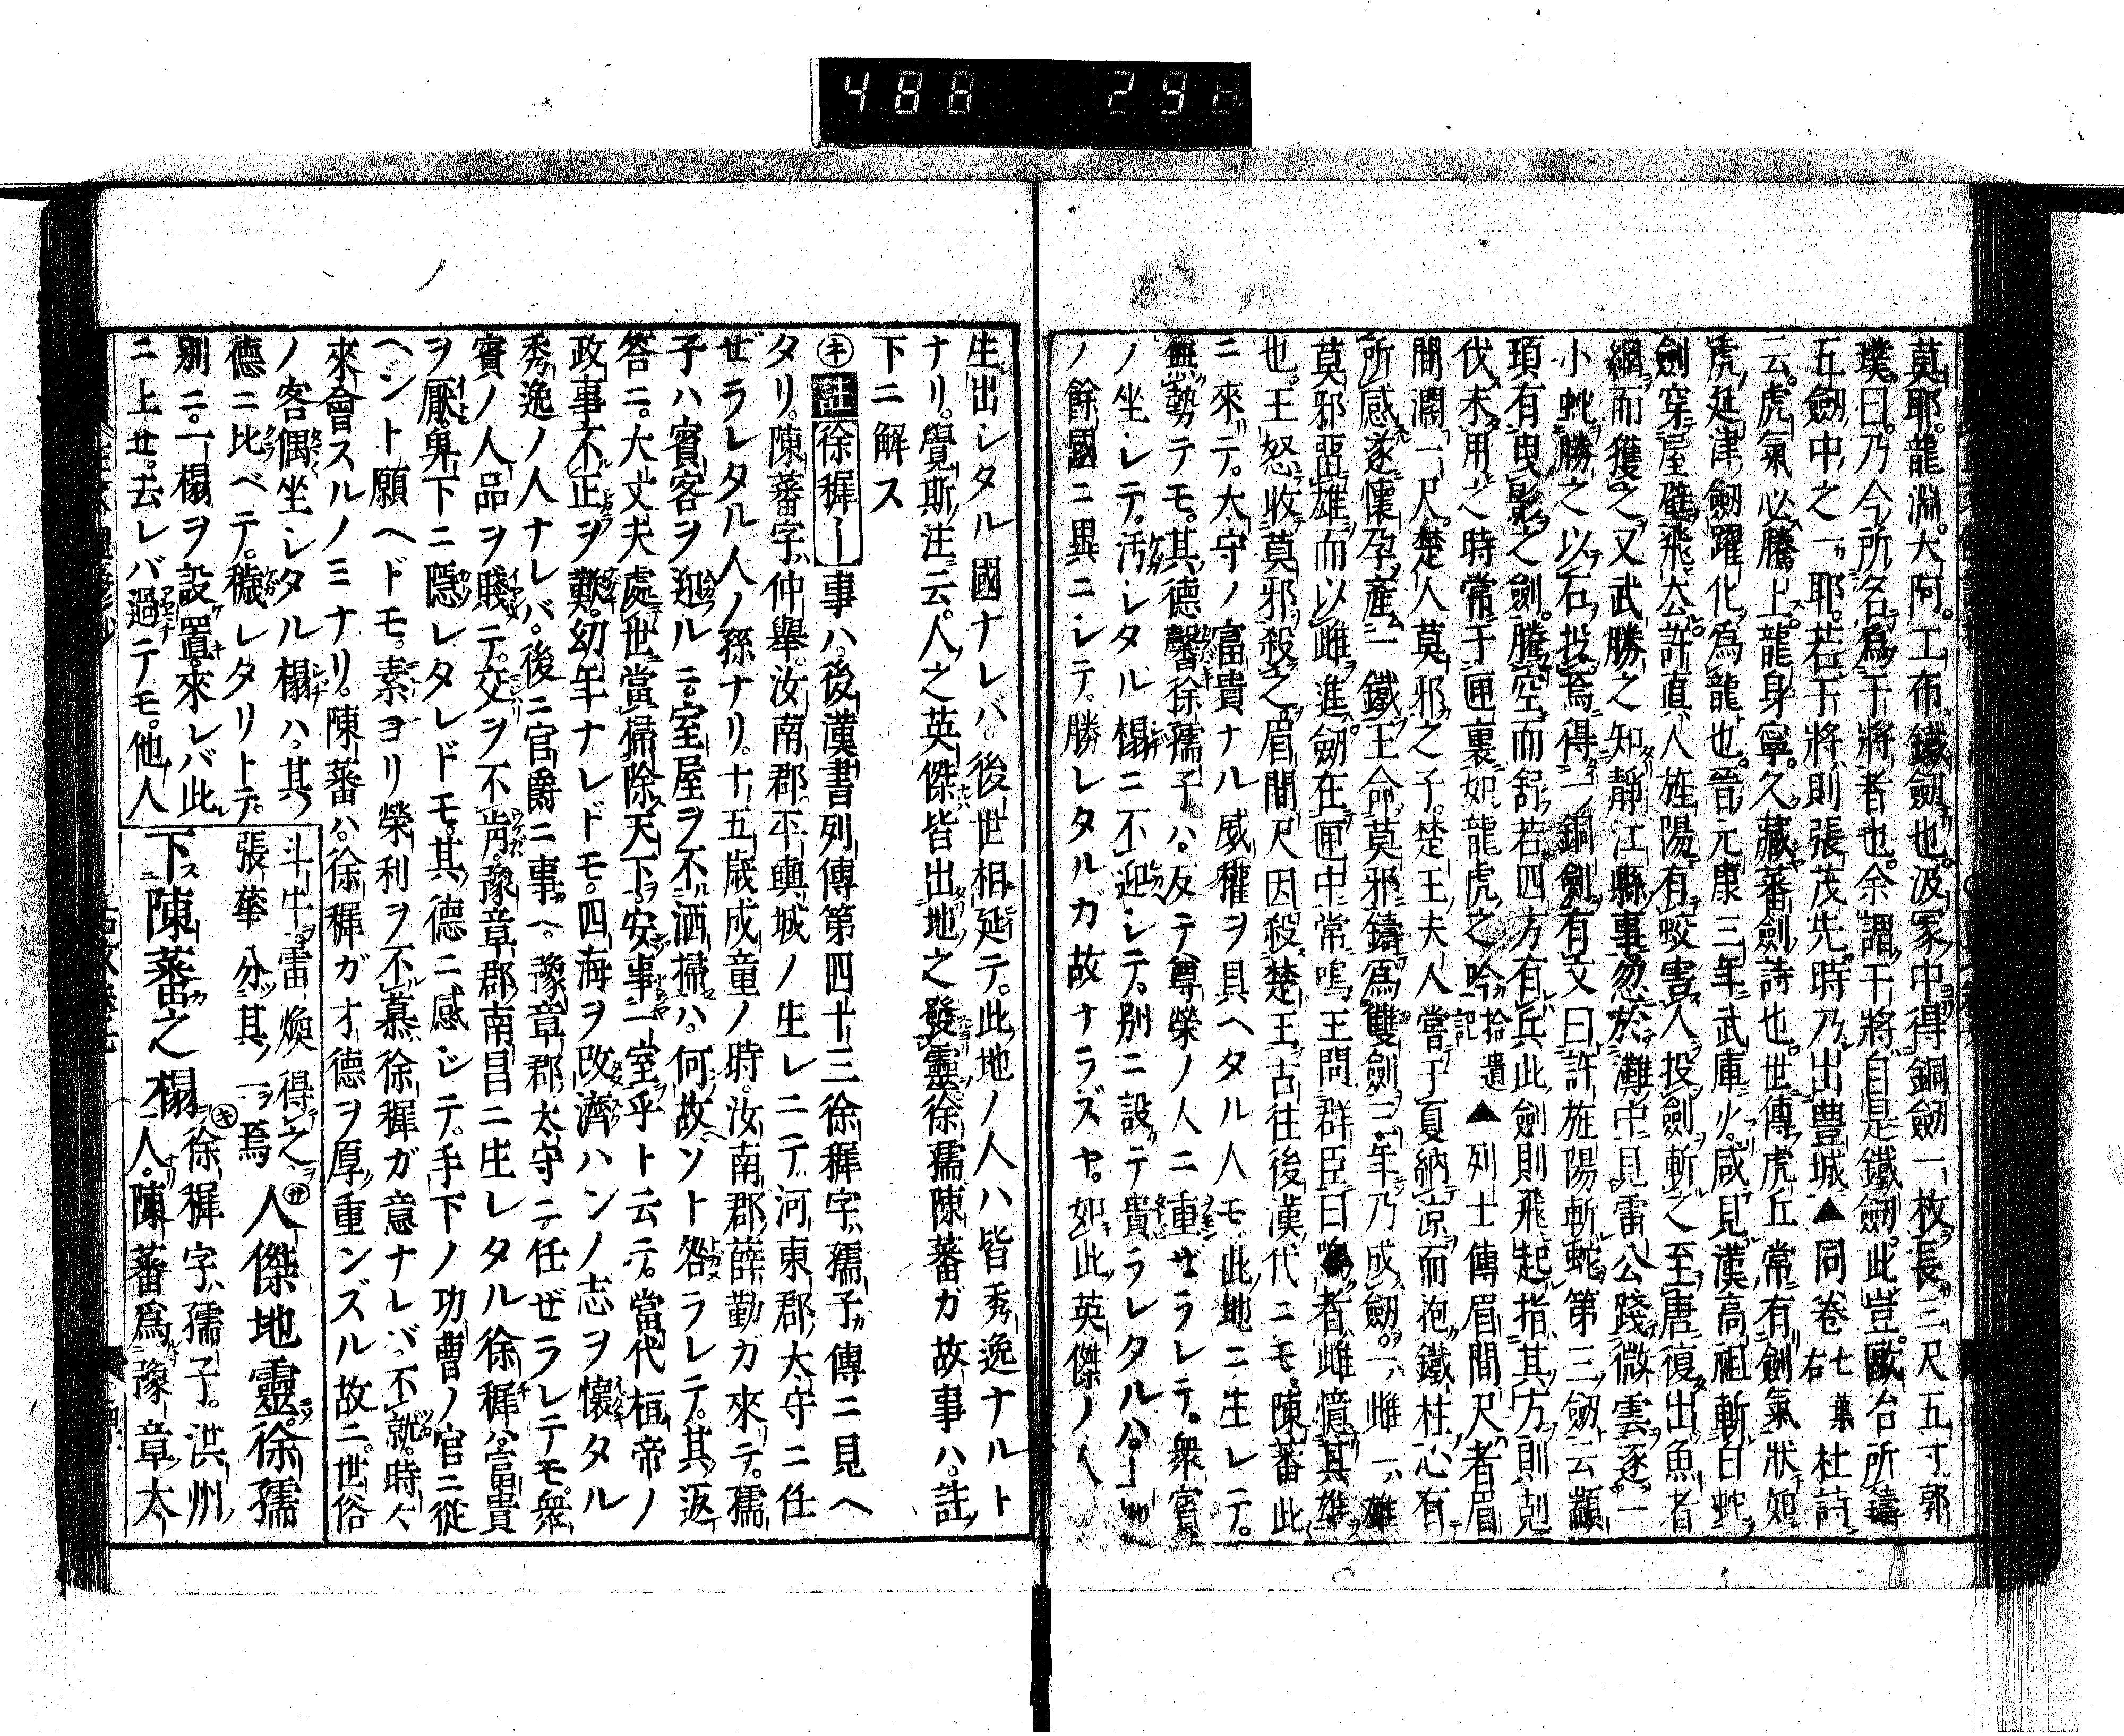 488 29
莫耶。龍淵。大阿。工布、鐵劔也。汲冢中得銅劔一枚長三尺五寸郭
璞曰。乃今所名爲干將者也。余謂干將自是鐵劔。此豈歐冶所鑄
五劔中之一耶。若干將則張茂先。時乃出豊城▲同卷七葉右杜詩
云。虎氣必騰上。龍身寧久藏蕃劍詩也。世傳虎丘常有劍氣狀如
虎延津劔躍化爲龍也。晉元康三年武庫火咸見漢高祖斬白蛇
劍穿屋壁飛去許眞人旌陽有蛟害人投劍斬之至唐復出魚者
網而獲之又武勝之知靜江縣事忽於灘中見雷公踐微雲逐一
小蛇勝之以石投焉得一銅劍有文曰許旌陽斬蛇第三劔云顓
頊有曳影之劍。騰空而舒若四方有兵此劍則飛起指其方則剋
伐未用之時常于匣裏如龍虎之吟拾遺記▲列士傳眉間尺者眉
間濶一尺。楚人莫邪之子。楚王夫人當于夏納凉而抱鐵柱心有
所感遂懷孕產一鐵王命莫邪鑄爲雙劍三年乃成劔。一雌一雄
莫邪匿雄而以雌進劔在匣中常鳴王問群臣曰鳴者雌憶其雄
也。王怒收莫邪殺之眉間尺因殺楚王古往後漢代ニモ。陳蕃此
ニ來テ。大守ノ富貴ナル威權ヲ具ヘタル人モ此地ニ生レテ。
無勢テモ。其德馨徐孺子ハ。反テ尊榮ノ人ニ重ゼラレテ。衆賓
ノ坐シテ。汚レタル榻ニ不迎シテ。別ニ設テ貴ラレタルハ。
ノ餘國ニ異ニシテ。勝レタルガ故ナラズヤ。如此英傑ノ人
生出シタル國ナレバ後世相延テ。此地ノ人ハ皆秀逸ナルト
ナリ。覺斯注云。人之英傑皆出地之發靈徐孺陳蕃ガ故事ハ。註
下ニ解ス
㋖註徐穉〡事ハ。後漢書列傳第四十三徐穉字孺子傳ニ見ヘ
タリ。陳蕃字仲擧汝南郡平輿城ノ生レニテ河東郡太守ニ任
ゼラレタル人ノ孫ナリ。十五歳成童ノ時。汝南郡薛勤ガ來テ。孺
子ハ賓客ヲ迎ルニ室屋ヲ不洒掃ハ何故ソト咎ラレテ。其返
答ニ。大丈夫處世當掃除天下。安事一室乎ト云テ。當代桓帝ノ
政事不正ヲ歎。幼年ナレドモ。四海ヲ改濟ハンノ志ヲ懷タル
秀逸ノ人ナレバ。後ニ官爵ニ事ヘ。豫章郡太守ニ任ゼラレテモ。衆
賓ノ人品ヲ賤テ。交ヲ不肯。豫章郡南昌ニ生レタル徐穉ハ。富貴
ヲ厭。卑下ニ隱レタレドモ。其德ニ感ジテ。手下ノ功曹ノ官ニ從
ヘント願ヘドモ。素ヨリ榮利ヲ不慕徐穉ガ意ナレバ不就。時々
來會スルノミナリ。陳蕃ハ。徐穉ガオ德ヲ厚重ンズル故ニ。世俗
ノ客偶坐シタル榻ハ。其
德ニ比ベテ。穢レタリトテ。
別ニ。一榻ヲ設置。來レバ此
ニ上セ。去レバ過テモ。他人
斗牛。雷煥得之㋚人傑地靈徐孺
張華分其一焉
下陳蕃之榻㋖徐穉字孺子。洪州
人。陳蕃爲豫章太